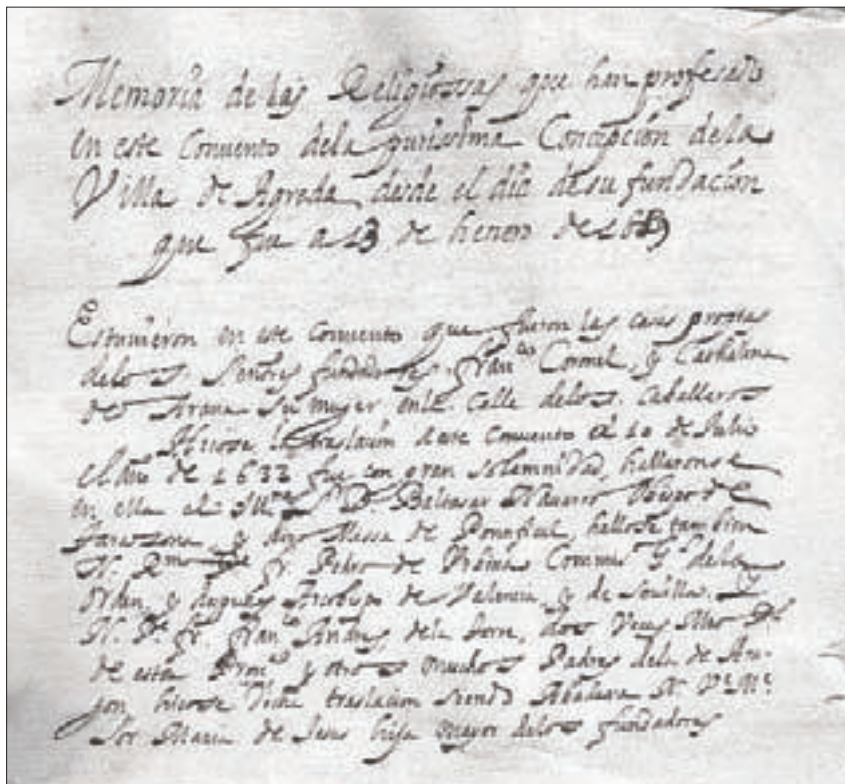 Memoria de las Religiossas que han profesado
en este Convento dela purissima Concepción dela
Villa de Agreda, desde el día de su fundación
que fue a 13 de henero de 1619
Estuuieron en este conuento que fueron las casas propias
delos SS. Señores fundadores Franco Coronel, y Cathalina
de Arana su mujer en la Calle delos Caballeros
Hiçose la traslaçion deste conuento el 10 de Julio
el año de 1633 fue con gran solemnidad, hallaronse
en ella el Sr. D. Baltasar Nauarro Obispo de
Taraçona, y dixo Missa de Pontifical, hallose tambien
N. Rmo P. fr. Pedro de Vrbina Commis. Gl. dela
Orden, y despues Arçobispo de Valencia, y de Seuilla. Y
N. P. fr. Franco Andres, dela Torre, dos Veces
de esta Prouª y otros muchos Padres dela de Ara-
gon hiçose dicha traslacion siendo Abadessa N. Ve. Me.
Sor Maria de Jesus hija mayor delos fundadores